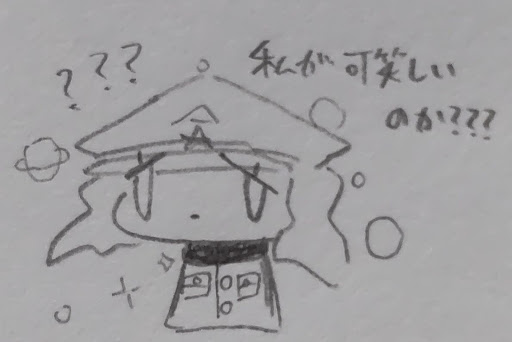 ???
私が可笑しい
のか???